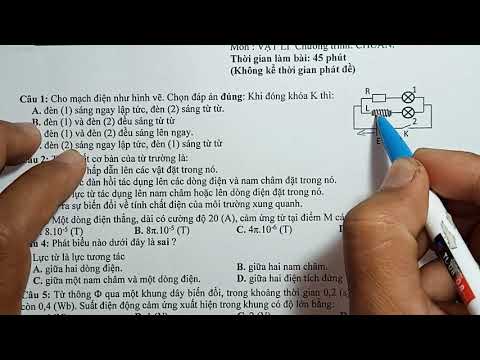 Môn : VẬT LÍ Chương trình: CHUẨN.
Thời gian làm bài: 45 phút
(Không kể thời gian phát đề)
Câu 1: Cho mạch điện như hình vẽ. Chọn đáp án đúng: Khi đóng khóa K thì:
A. đèn (1) sáng ngay lập tức, đèn (2) sáng từ từ.
B. đèn (1) và đèn (2) đều sáng từ từ
đèn (1) và đèn (2) đều sáng lên ngay.
đèn (2) sáng ngay lập tức, đèn (1) sáng từ từ
R
1
L
2
E
K
Câu 2: ất cơ bản của từ trường là:
hấp dẫn lên các vật đặt trong nó.
c đàn hồi tác dụng lên các dòng điện và nam châm đặt trong nó.
lực từ tác dụng lên nam châm hoặc lên dòng điện đặt trong nó.
ra sự biến đổi về tính chất điện của môi trường xung quanh.
Một dòng điện thẳng, dài có cường độ 20 (A), cảm ứng từ tại điểm M cá
8.10⁻⁵ (T) B. 8π.10⁻⁵ (T) C. 4π.10⁻⁶ (T) D.
4: Phát biểu nào dưới đây là sai ?
Lực từ là lực tương tác
A. giữa hai dòng điện. B. giữa hai nam châm.
C. giữa một nam châm và một dòng điện. D. giữa hai điện tích đứng
Câu 5: Từ thông Φ qua một khung dây biến đổi, trong khoảng thời gian 0,2 (s
còn 0,4 (Wb). Suất điện động cảm ứng xuất hiện trong khung có độ lớn bằng: